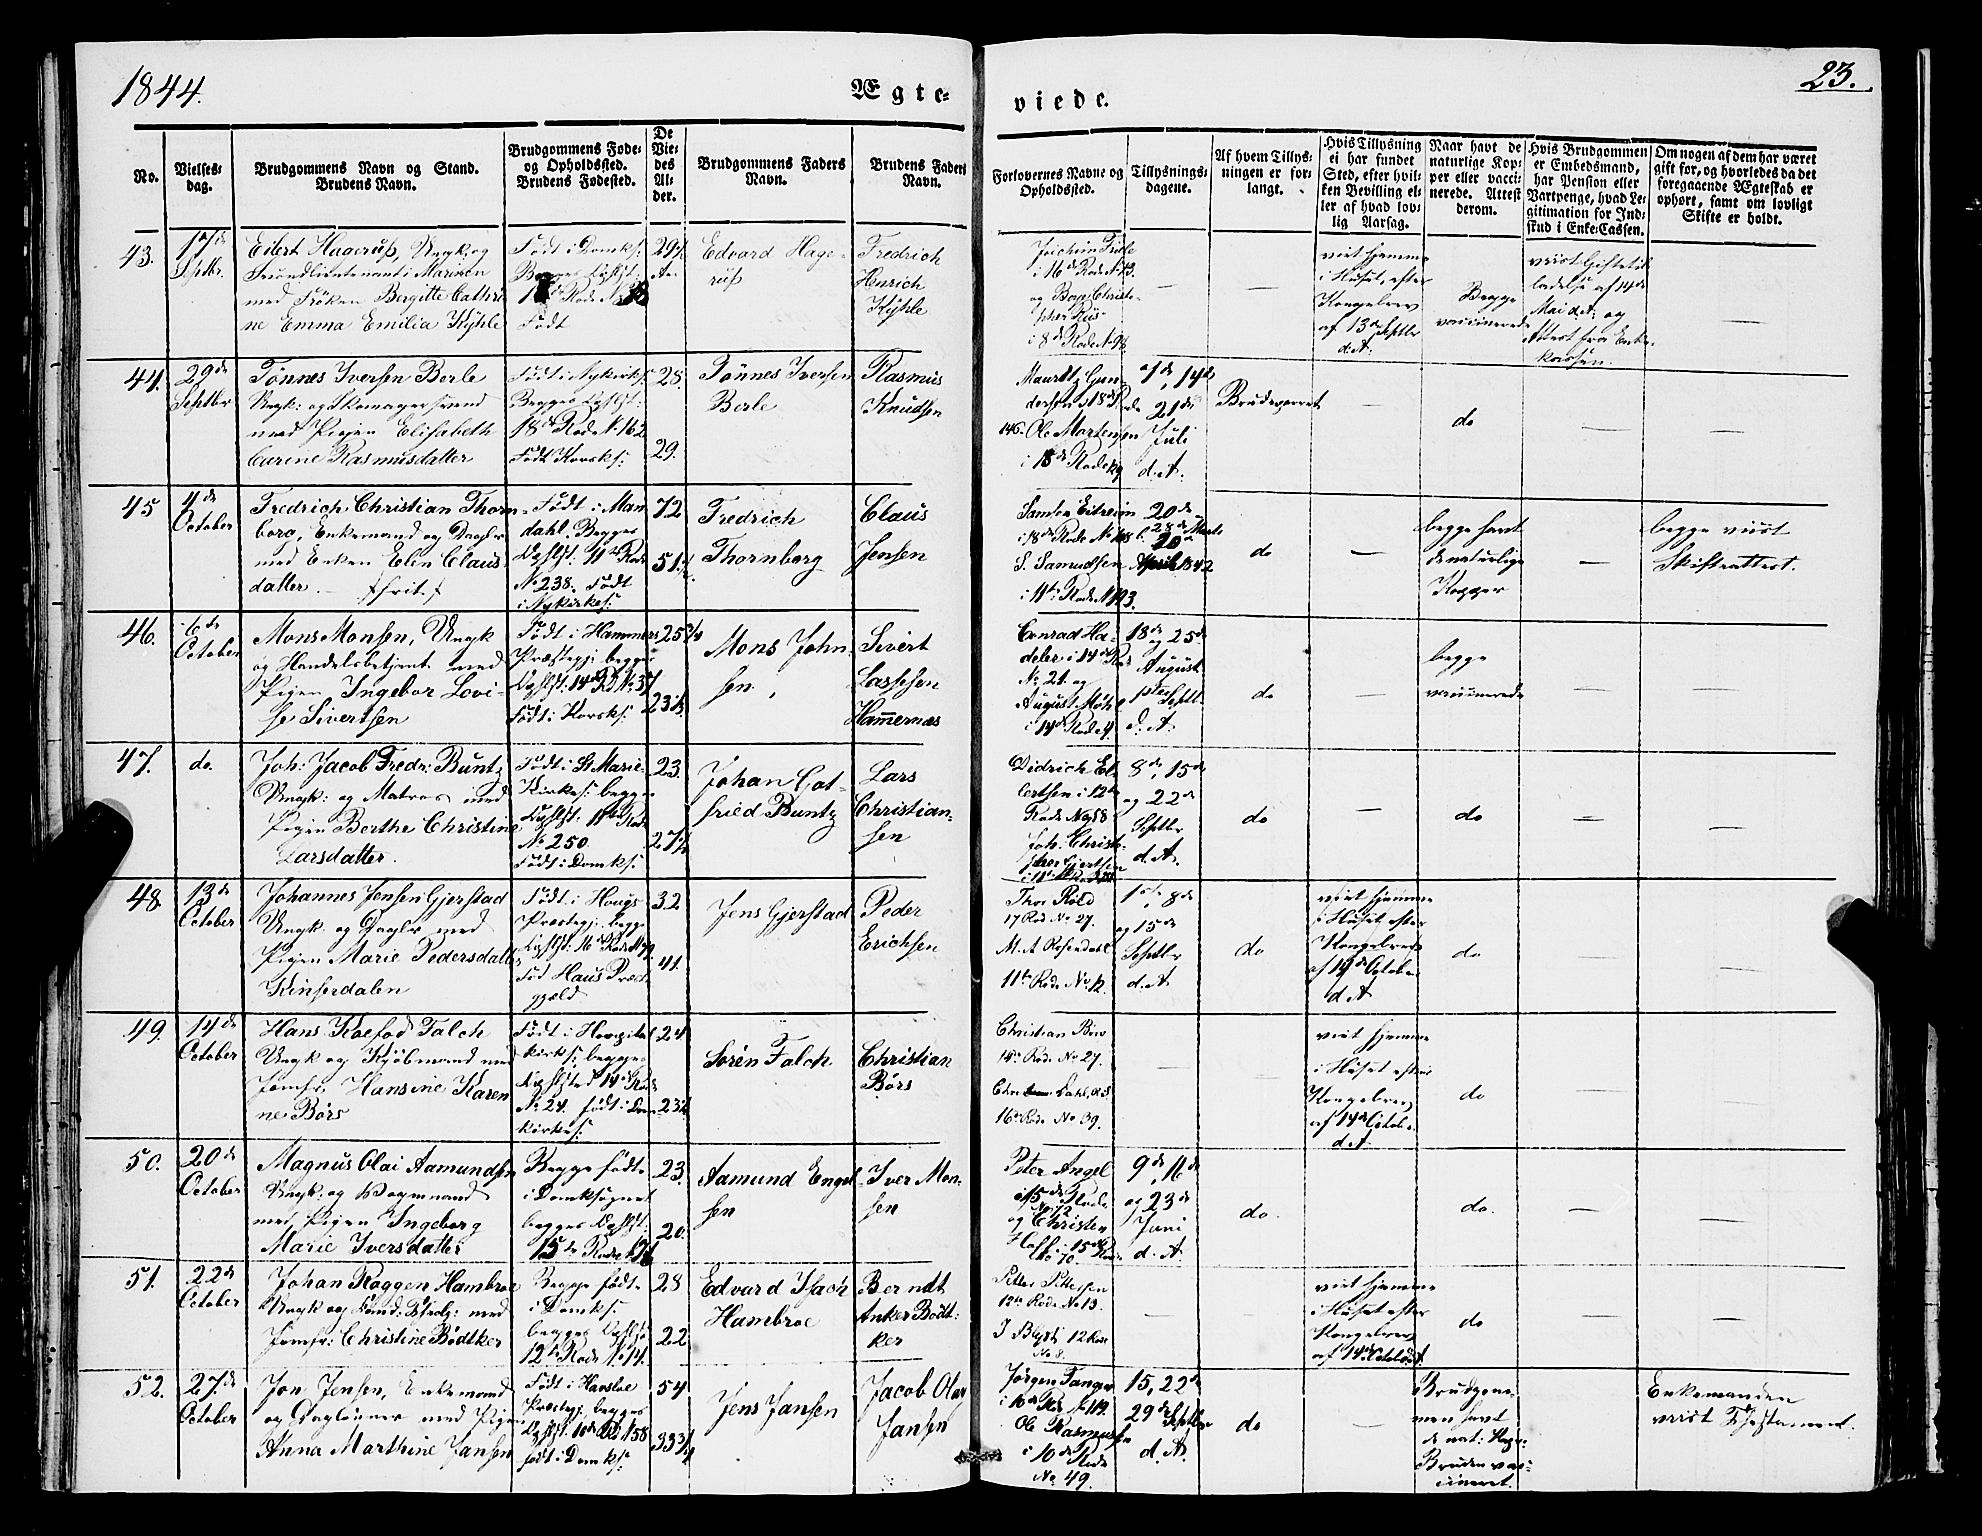 1844.
Ægte-
viede.
23.
No.
Vielses-
dag.
Brudgommens Navn og Stand.
Brudens Navn.
Brudgommens Føde-
og Opholdssted.
Brudens Fødested.
De
Vie-
des
Al-
der.
Brudgommens Faders
Navn.
Brudens Faders
Navn.
Forlovernes Navne og
Opholdssted.
Tillysnings-
dagene.
Af hvem Tillys-
ningen er for-
langt.
Hvis Tillysning
ei har fundet
Sted, efter hvil-
ken Bevilling el-
ler af hvad lov-
lig Aarsag.
Naar havt de
naturlige Kop-
per eller vacci-
nerede. Attest
derom.
Hvis Brudgommen
er Embedsmand,
har Pension eller
Vartpenge, hvad Le-
gitimation for Ind-
skud i Enke-Cassen.
Om nogen af dem har været
gift før, og hvorledes da det
foregaaende Ægteskab er
ophørt, samt om lovligt
Skifte er holdt.
43.
17de
Septbr.
Eilert Hagerup, Ungk og
Secondlieutenant i Marinen
med Frøken Bergitte Cathri
ne Emma Emilia Kyhle
Født i Domks:
Født
29
Edvard Hage-
rup
Fredrich
Henrich
Kyhle
i 16de Rode
og
i 8de Rode
—
—
viet hjemme
i Huset, efter
Kongebrev
af 13de Septbr
d.A.
Begge
vaccinerede
ladelse af 14de
Mai d.A. og
Attest fra Enke-
kassen.
—
44.
29de
Septbr
Tönnes Iversen Berle
Ungk: og Skomagersvend
med Pigen Elisabeth
Carine Rasmusdatter
Født i Nykirks:
Begges Opholdst:
18de Rode No 162
Født Korsks:
28.
29.
Tönnes Iversen
Berle
Rasmus
Knudsen
Mauritz Gun-
dersen i 18de Rode
146. Ole Mortensen
i 18de Rode
7de, 14de
21de
Juli
d.A.
Brudeparret
—
do
—
—
45
4de
October
Fredrich Christian Thorn-
borg, Enkemand og Dagler
med Enken Elen Claus
datter.
Født i Man
dahl. Begges
Opholdst. 11te Rode
No 238. Født
i Nykirkes:
72
51
Fredrich
Thornborg
Claus
Jensen
i 18de Rode
S. Samudsen
i 11te Rode
20de
28de Marts
April 1842
do
—
begge havt
de naturlige
Kopper
—
begge viist
Skifteattest.
46.
6de
October
Mons Monsen, Ungk
og Handelsbetjent med
Pigen Ingebor Lovi-
se Sivertsen
Født i Hammers
Præstegj. begges
Født i Korsks:
25
23
Mons John-
sen
Sivert
Lassesen
Hamernæs
Conrad Ha-
deler i 14de Rode
No 21. og
August
i 14de Rode
18de og 25de
August
1ste Septbr
d.A.
do
—
begge
vaccinerede
—
—
47.
do.
Joh: Jacob Fredr: Buntz
Ungk: og Matros med
Pigen Berthe Christine
Larsdatter.
Født i St Marie
Kirkes: begges
Opholdst: 11te Rode
No 250
Født i Domks:
23.
27
Johan Got-
fried Buntz
Lars
Christian-
sen
Didrich El-
lertsen i 12te
Rode No 58
Joh. Christo-
pher Giertsen
8de, 15de
og 22de
Septbr
d.A.
do
—
do
—
—
48
13de
October
Johannes Jensen Gjerstad
Ungk. og Dagler med
Pigen Marie Pedersdatter
Kinserdalen
Født i Hougs
Præstegj. begges
Opholdst: 16de Rode
Fød Haus Præst
gjeld
32
41.
Jens Gjerstad
Peder
Erichsen
Thor Röld
17 Rode No 27.
M. A Rosendahl
11te Rode No 12.
1ste, 8de
og 15de
Septbr
d.A
do
viet hjemme
i Huset efter
Kongebrev
af 14de October
d.A
do
—
—
49.
14de
October
Hans Koefod Falch
Ungk og Kjøbmand med
Jomfr. Hansine Karen
ne Börs
Født i Hospital
kirks: begges
Opholdsted 14de Rode
No 24. født i Dom-
kirkes:
24
23
Sören Falch
Christian
Börs
Christian Börs
14de Rode No 27.
Dahl,
16de Rode No 39.
—
—
viet hjemme
i Huset efter
Kongebrev
af 14de October
d.A.
do
—
—
50.
20de
October
Magnus Olai Aamundsen
Ungk. og Vognmand
med Pigen Ingeborg
Marie Iversdatter
Begge født
i Domksognet
begges Opholdst:
15de Rode
23.
20.
Aamund Engel-
sen
Iver Mon-
sen
Peter Angel
i 15de Rode
No 72
og Christen
i 15de Rode
No 70.
9de, 16de
og 23de
Juni
d.A.
do.
do.
—
—
51.
22de
October
Johan Roggen Hambroe
Ungk og med
Jomfr: Christine Bödtker
Begge født
i Domks:
begges Opholdst
12te Rode No 14.
28
22
Edvard Isach
Hambroe
Berndt
Anker Bödt-
ker
Petter Pettersen
12te Rode No 13.
12 Rode
No 8.
—
—
viet hjemme
i Huset efter
Kongebrev
af 14de October
do
—
—
52.
27de
October
Jon Jensen, Enkemand
og Daglönner med Pigen
Anna Marthine Jansen
Født i Havsloe
Præstegj. begges
Opholdst: 10de Rode 158
født i Domks:
54
33
Jens Jansen
Jacob Olai
Jansen
Jörgen Fanger
i 10de Rode 119.
Ole Rasmussen
i 10de Rode
No 49.
15, 22de
29de Septbr
d.A.
do
—
Brudgom-
men havt
de nat: Kopp:
Bruden vac-
cineret.
—
Enkemanden
viist Testament.